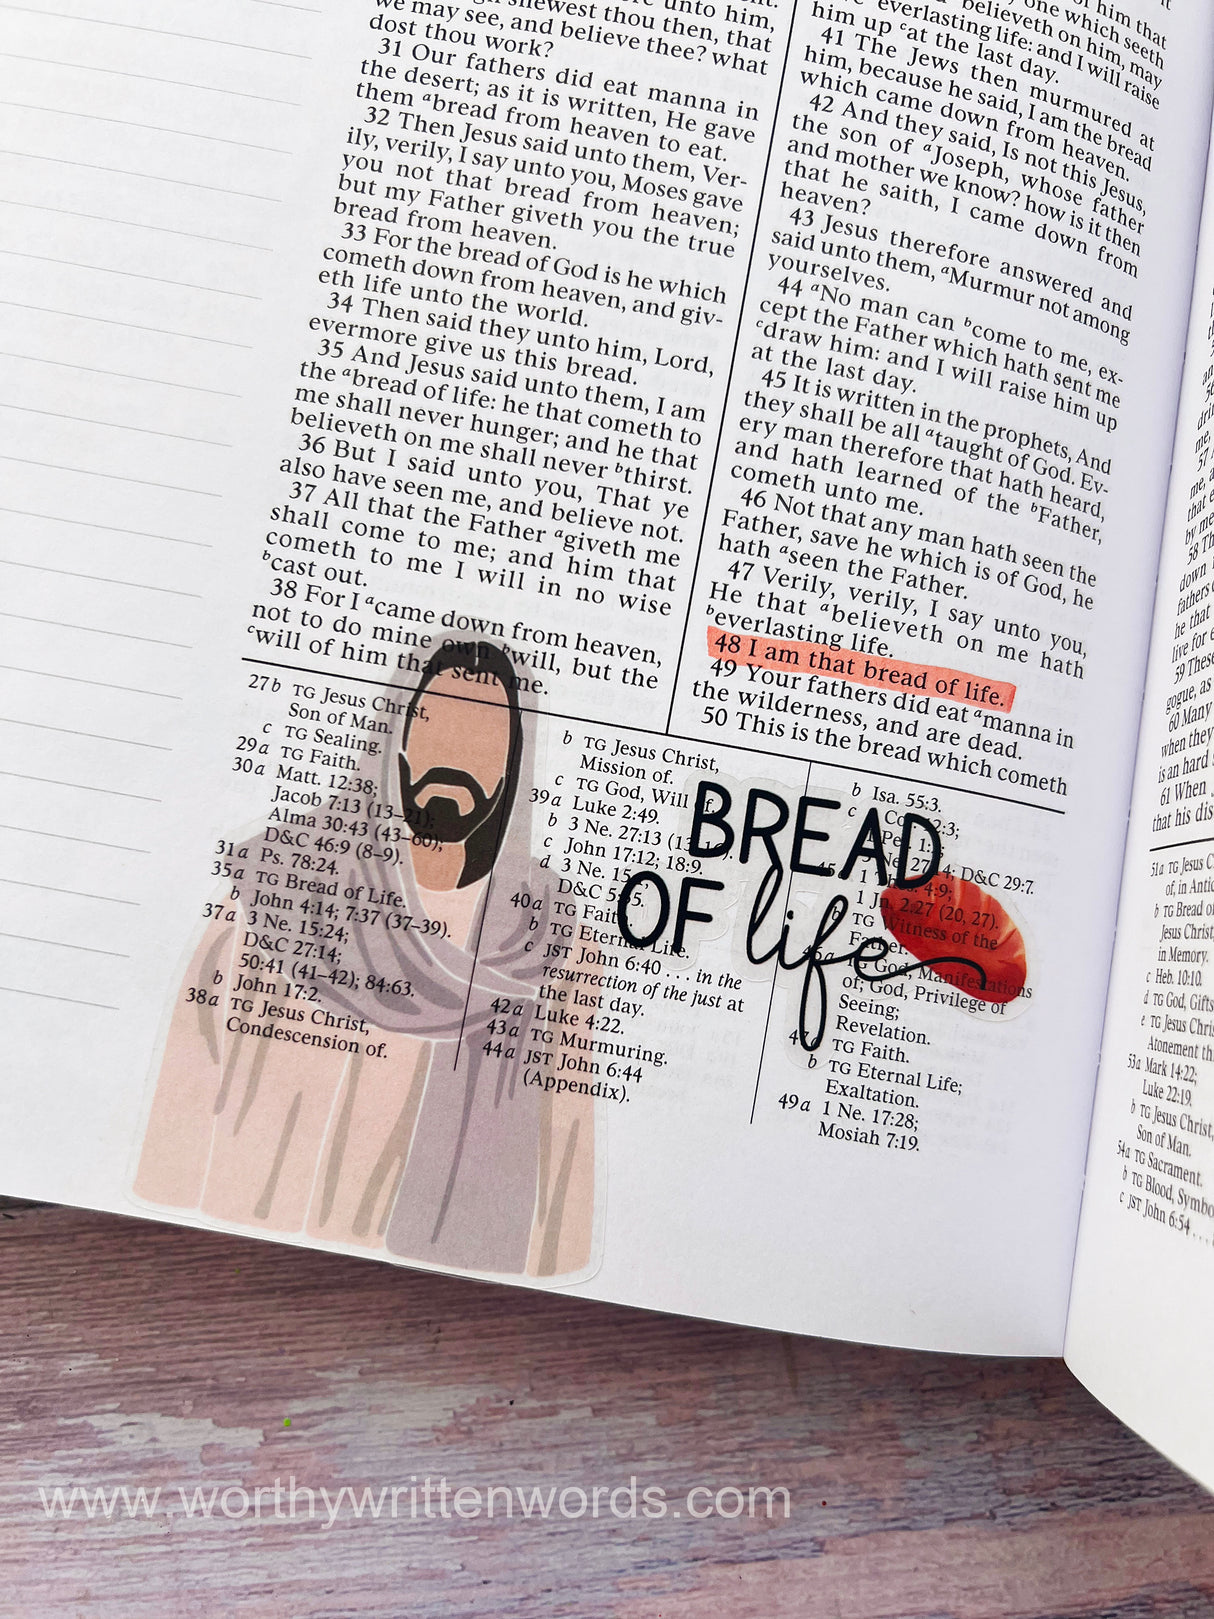 unto him,
shewest thou then, that
we may see, and believe thee? what
dost thou work?
31 Our fathers did eat manna in
the desert; as it is written, He gave
them ᵃbread from heaven to eat.
32 Then Jesus said unto them, Ver-
ily, verily, I say unto you, Moses gave
you not that bread from heaven;
but my Father giveth you the true
bread from heaven.
33 For the bread of God is he which
cometh down from heaven, and giv-
eth life unto the world.
34 Then said they unto him, Lord,
evermore give us this bread.
35 And Jesus said unto them, I am
the ᵃbread of life: he that cometh to
me shall never hunger; and he that
believeth on me shall never ᵇthirst.
36 But I said unto you, That ye
also have seen me, and believe not.
37 All that the Father ᵃgiveth me
shall come to me; and him that
cometh to me I will in no wise
ᵇcast out.
38 For I ᵃcame down from heaven,
not to do mine own ᵇwill, but the
ᶜwill of him that sent me.
of him that
one which seeth
believeth on him, may
everlasting life: and I will raise
him up ᶜat the last day.
41 The Jews then murmured at
him, because he said, I am the bread
which came down from heaven.
42 And they said, Is not this Jesus,
the son of ᵃJoseph, whose father
and mother we know? how is it then
that he saith, I came down from
heaven?
43 Jesus therefore answered and
said unto them, ᵃMurmur not among
yourselves.
44 ᵃNo man can ᵇcome to me, ex-
cept the Father which hath sent me
ᶜdraw him: and I will raise him up
at the last day.
45 It is written in the prophets, And
they shall be all ᵃtaught of God. Ev-
ery man therefore that hath heard,
and hath learned of the ᵇFather,
cometh unto me.
46 Not that any man hath seen the
Father, save he which is of God, he
hath ᵃseen the Father.
47 Verily, verily, I say unto you,
He that ᵃbelieveth on me hath
ᵇeverlasting life.
48 I am that bread of life.
49 Your fathers did eat ᵃmanna in
the wilderness, and are dead.
50 This is the bread which cometh
27b TG Jesus Christ,
Son of Man.
c TG Sealing.
29a TG Faith.
30a Matt. 12:38;
Jacob 7:13 (13–21);
Alma 30:43 (43–60);
D&C 46:9 (8–9).
31a Ps. 78:24.
35a TG Bread of Life.
b John 4:14; 7:37 (37–39).
37a 3 Ne. 15:24;
D&C 27:14;
50:41 (41–42); 84:63.
b John 17:2.
38a TG Jesus Christ,
Condescension of.
b TG Jesus Christ,
Mission of.
c TG God, Will of.
39a Luke 2:49.
b 3 Ne. 27:13
c John 17:12; 18:9.
d 3 Ne.
D&C
40a TG Faith.
b TG Eternal Life.
c JST John 6:40 . . . in the
resurrection of the just at
the last day.
42a Luke 4:22.
43a TG Murmuring.
44a JST John 6:44
(Appendix).
b Isa. 55:3.
c
D&C 29:7.
4:9;
1 Jn. 2:27 (20, 27).
b TG Witness of the
Father.
TG God, Manifestations
of; God, Privilege of
Seeing;
Revelation.
TG Faith.
b TG Eternal Life;
Exaltation.
49a 1 Ne. 17:28;
Mosiah 7:19.
BREAD
OF life
57
58
down
fathers
he that
live for
59 These
gogue, as
60 Many
when they
is an hard
61 When
that his dis
51a TG Jesus C
of, in Antic
b TG Bread o
Jesus Christ,
in Memory.
c Heb. 10:10.
d TG God, Gifts
e TG Jesus Christ
Atonement th
53a Mark 14:22;
Luke 22:19.
b TG Jesus Christ,
Son of Man.
54a TG Sacrament.
b TG Blood, Symbo
c JST John 6:54 . . .
www.worthywrittenwords.com